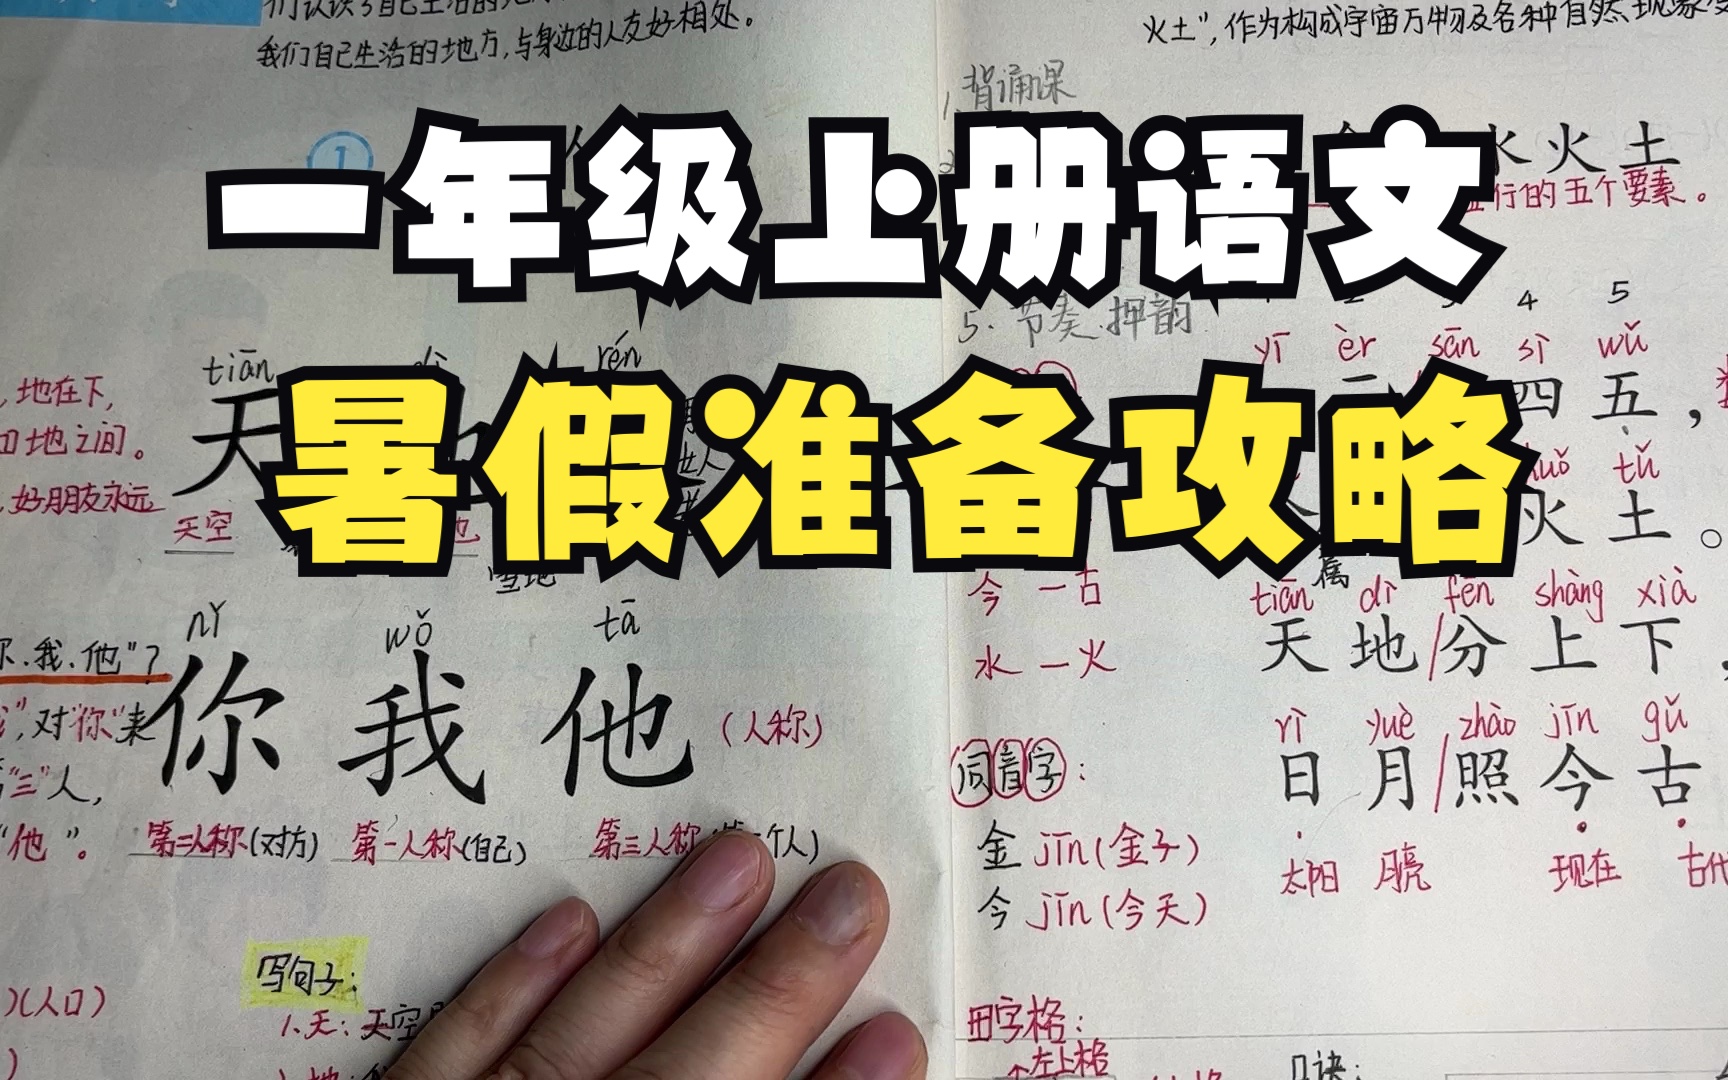 我们自己生活的地方,与身边的人友好相处。
火土",作为构成宇宙万物及各种自然现象
1.背诵课
一年级上册语文
水火土
行的五个要素。
5.节奏.押韵
4 5
tiān dì rén
yī èr sān sì wǔ
,地在下,
四五,
暑假准备攻略
地之间。
tǔ
,好朋友永远
天空
火土。
雪地
今 — 古
tiān dì fēn shàng xià
nǐ wǒ tā
水 — 火
天地/分上下,
你.我.他"?
你我他
(人称)
",对"你"来
rì yuè zhào jīn gǔ
"三"人,
同音字:
日月/照今古
"他"。
第二人称(对方) 第一人称(自己) 第三人称 个人)
金 jīn(金子)
太阳 月亮 现在 古代
今 jīn(今天)
写句子:
)(人口)
1.天:天空
田字格:
左上格
口诀: